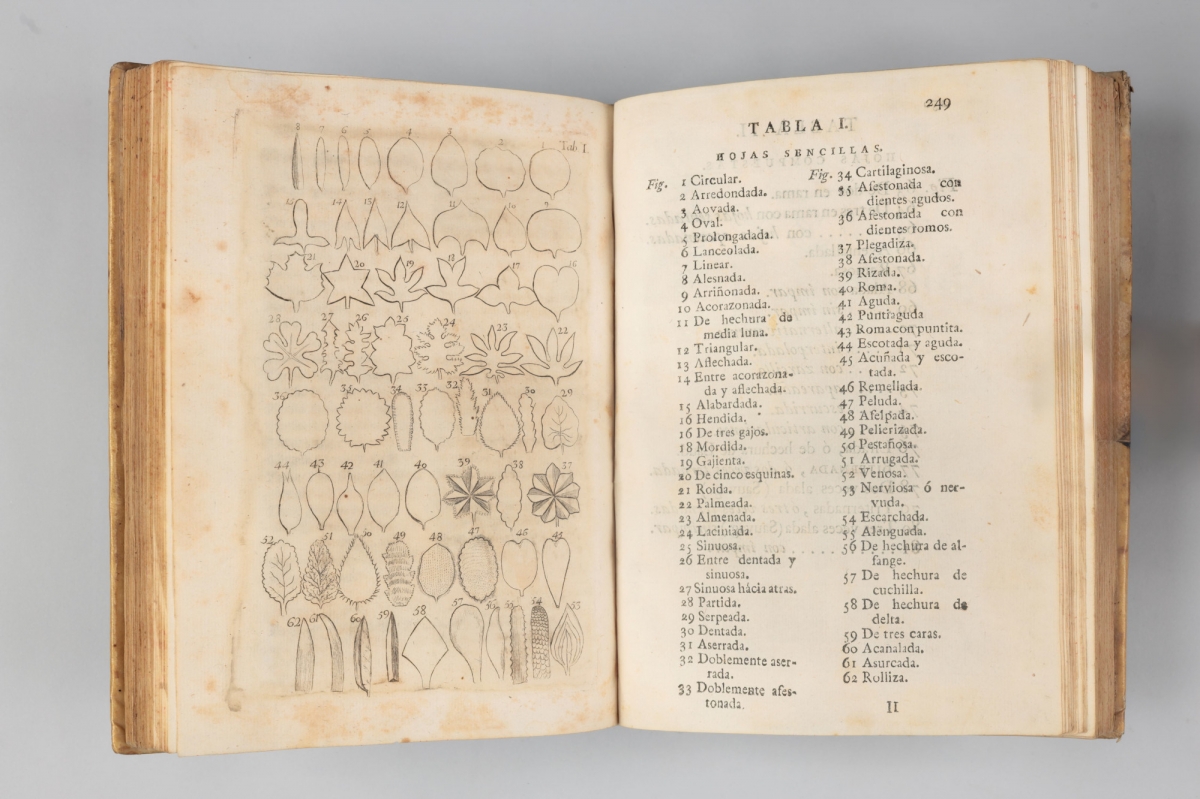 8 7 6 5 4 3 2 1 Tab I.
15 14 13 12 11 10 9
21 20 19 18 17 16
28 27 26 25 24 23 22
36 35 34 33 32 31 30 29
44 43 42 41 40 39 38 37
52 51 50 49 48 47 46 45
62 61 60 59 58 57 56 55 54 53
249
TABLA I.
HOJAS SENCILLAS.
Fig. 1 Circular.
2 Arredondada.
3 Aovada.
4 Oval.
5 Prolongadada.
6 Lanceolada.
7 Linear.
8 Alesnada.
9 Arriñonada.
10 Acorazonada.
11 De hechura de
media luna.
12 Triangular.
13 Aflechada.
14 Entre acorazona-
da y aflechada.
15 Alabardada.
16 Hendida.
16 De tres gajos.
18 Mordida.
19 Gajienta.
20 De cinco esquinas.
21 Roida.
22 Palmeada.
23 Almenada.
24 Laciniada.
25 Sinuosa.
26 Entre dentada y
sinuosa.
27 Sinuosa hácia atras.
28 Partida.
29 Serpeada.
30 Dentada.
31 Aserrada.
32 Doblemente aser-
rada.
33 Doblemente afes-
tonada.
Fig. 34 Cartilaginosa.
35 Afestonada con
dientes agudos.
36 Afestonada con
dientes romos.
37 Plegadiza.
38 Afestonada.
39 Rizada.
40 Roma.
41 Aguda.
42 Puntiaguda
43 Roma con puntita.
44 Escotada y aguda.
45 Acuñada y esco-
tada.
46 Remellada.
47 Peluda.
48 Afelpada.
49 Pelierizada.
50 Pestañosa.
51 Arrugada.
52 Venosa.
53 Nerviosa ó ner-
vuda.
54 Escarchada.
55 Alenguada.
56 De hechura de al-
fange.
57 De hechura de
cuchilla.
58 De hechura de
delta.
59 De tres caras.
60 Acanalada.
61 Asurcada.
62 Rolliza.
II